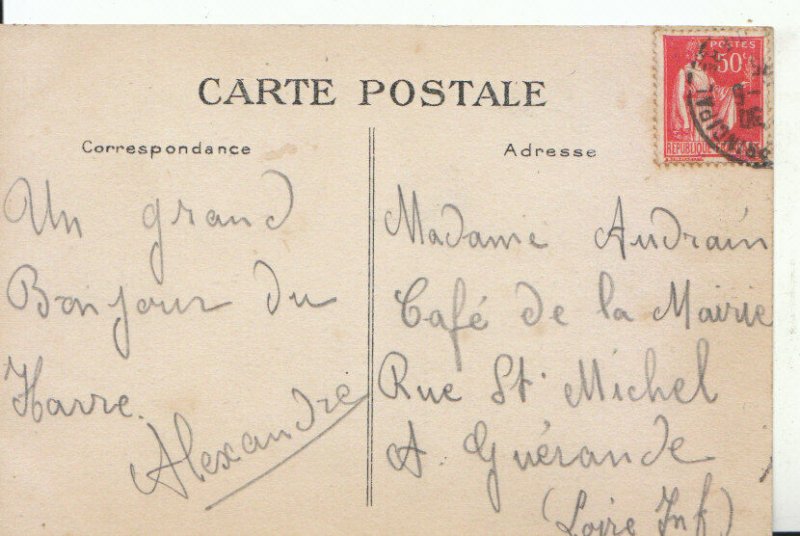 CARTE POSTALE
Correspondance
Adresse
POSTES
50c
REPUBLIQUE FRANÇAISE
PRINCIPAL
Un grand
Bonjour du
Havre.
Alexandre
Madame Audrain
Café de la Mairie
Rue St Michel
A. Guérande
(Loire Inf)